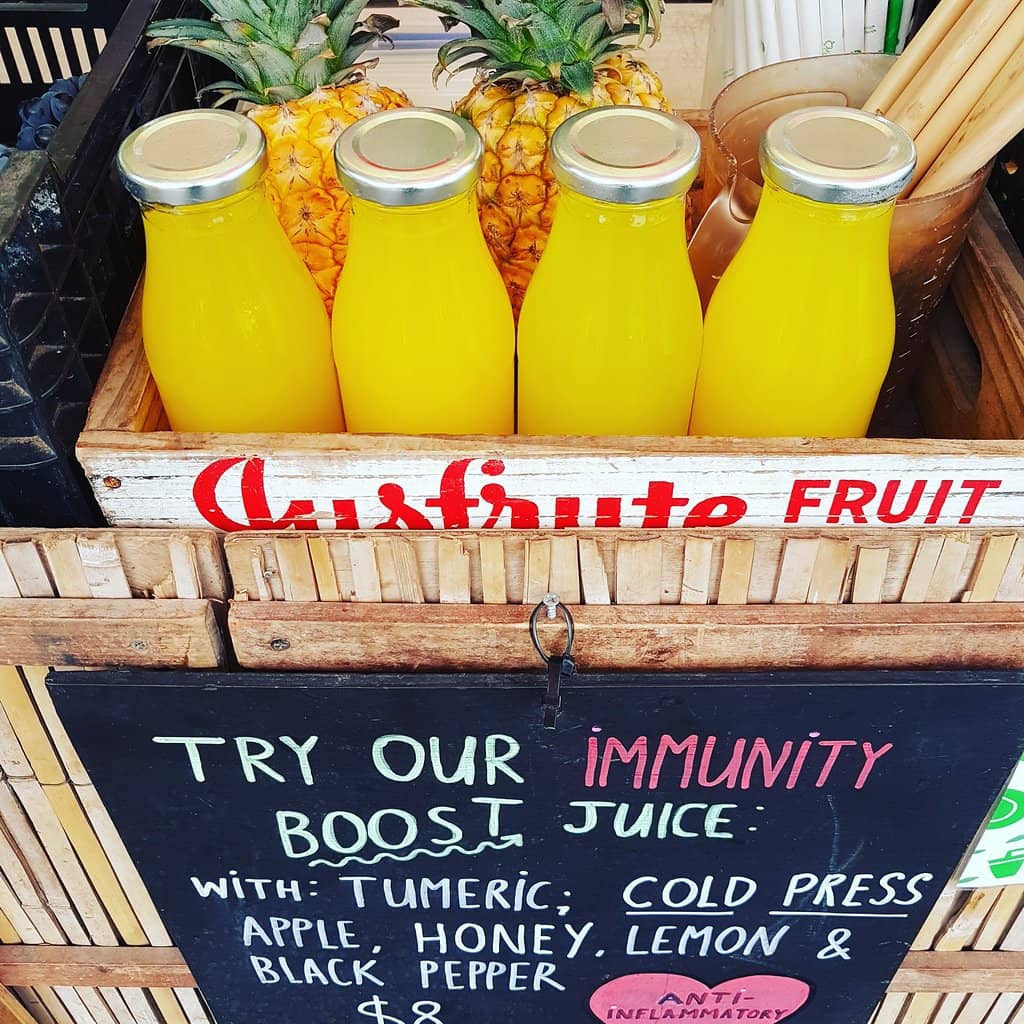 Jusfrute FRUIT
TRY OUR iMMUNiTY
BOOST JUiCE:
WiTH: TUMERiC; COLD PRESS
APPLE, HONEY, LEMON &
BLACK PEPPER
$8
ANTi-
iNFLAMMATORY